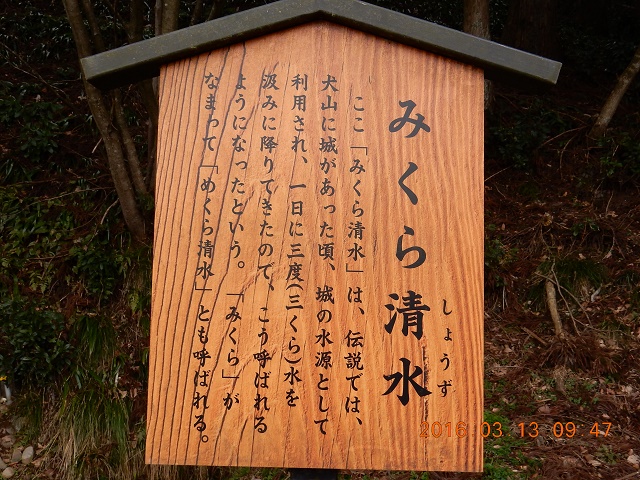 みくら清水
しょうず
ここ「みくら清水」は、伝説では、
犬山に城があった頃、城の水源として
利用され、一日に三度(三くら)水を
汲みに降りてきたので、こう呼ばれる
ようになったという。「みくら」が
なまって「めくら清水」とも呼ばれる。
2016.03.13 09:47